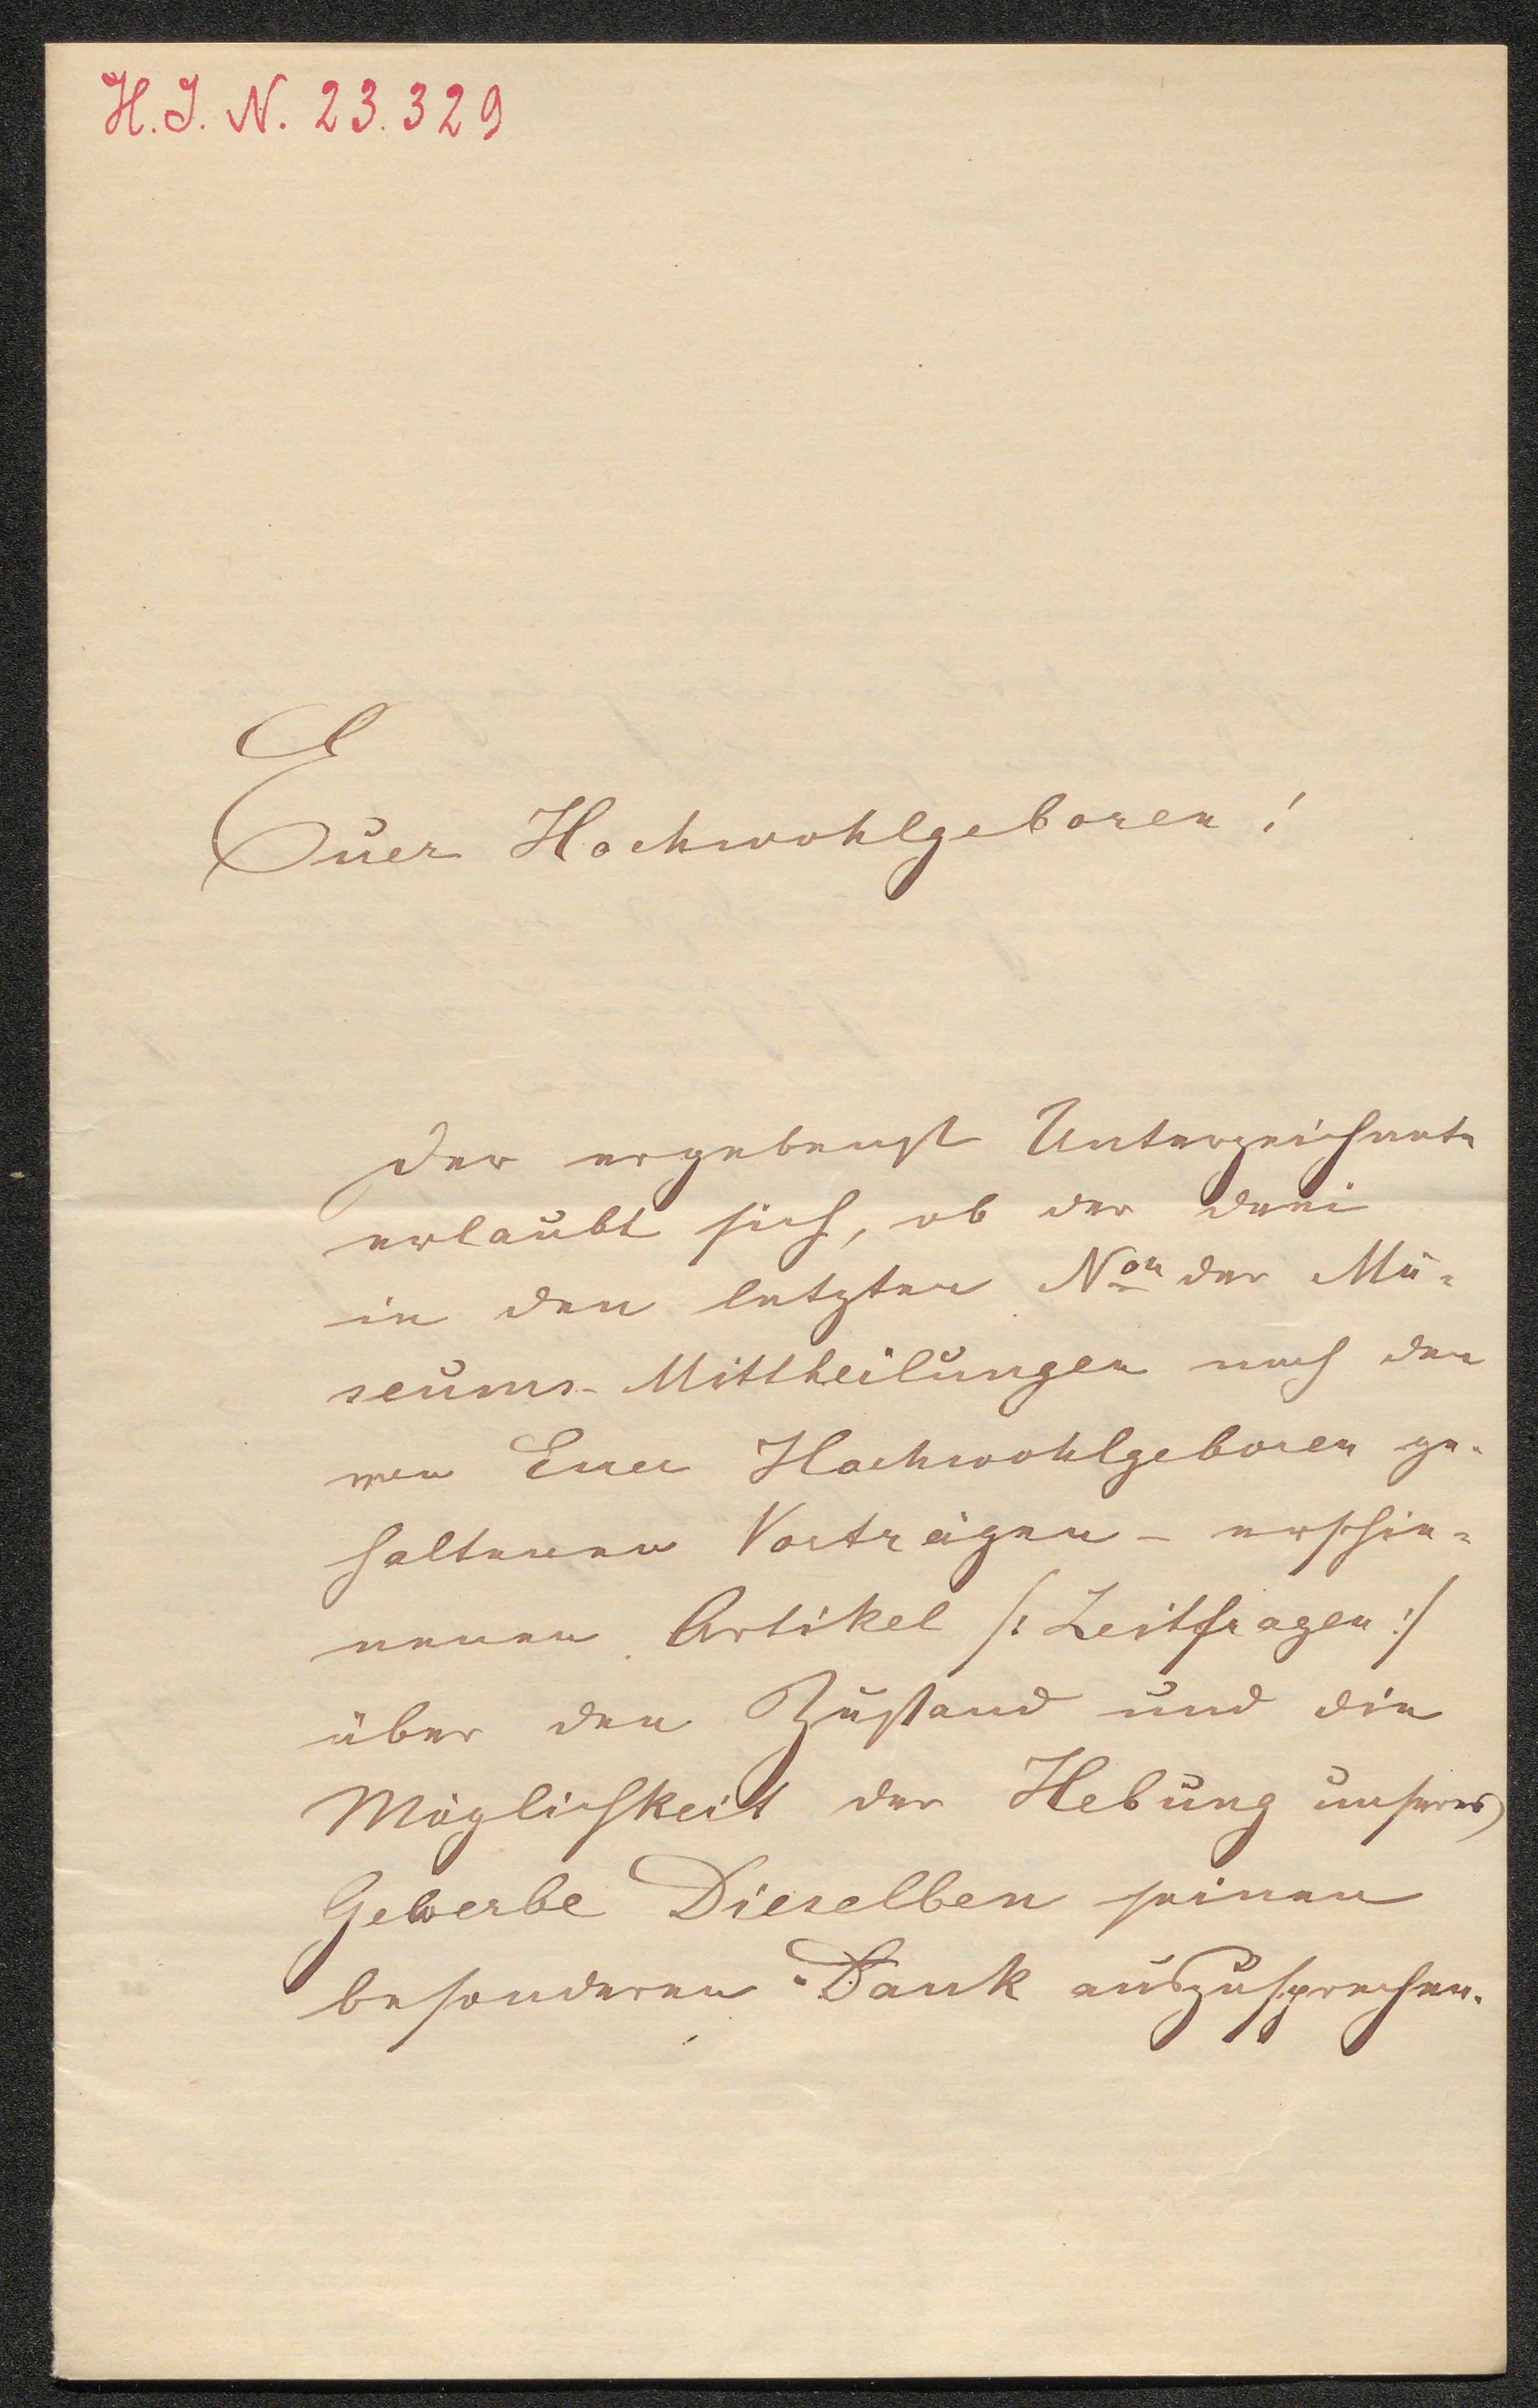 H. I. N. 23.329
Euer Hochwohlgeboren!
Der ergebenst Unterzeichnete
erlaubt sich, ob der drei
in den letzten Non der Mu-
seums-Mittheilungen nach den
von Euer Hochwohlgeboren ge-
haltenen Vorträgen - erschie-
nenen Artikel /: Zeitfragen :/
über den Zustand und die
Möglichkeit der Hebung unserer
Gewerbe Dieselben seinen
besonderen Dank auszusprechen.